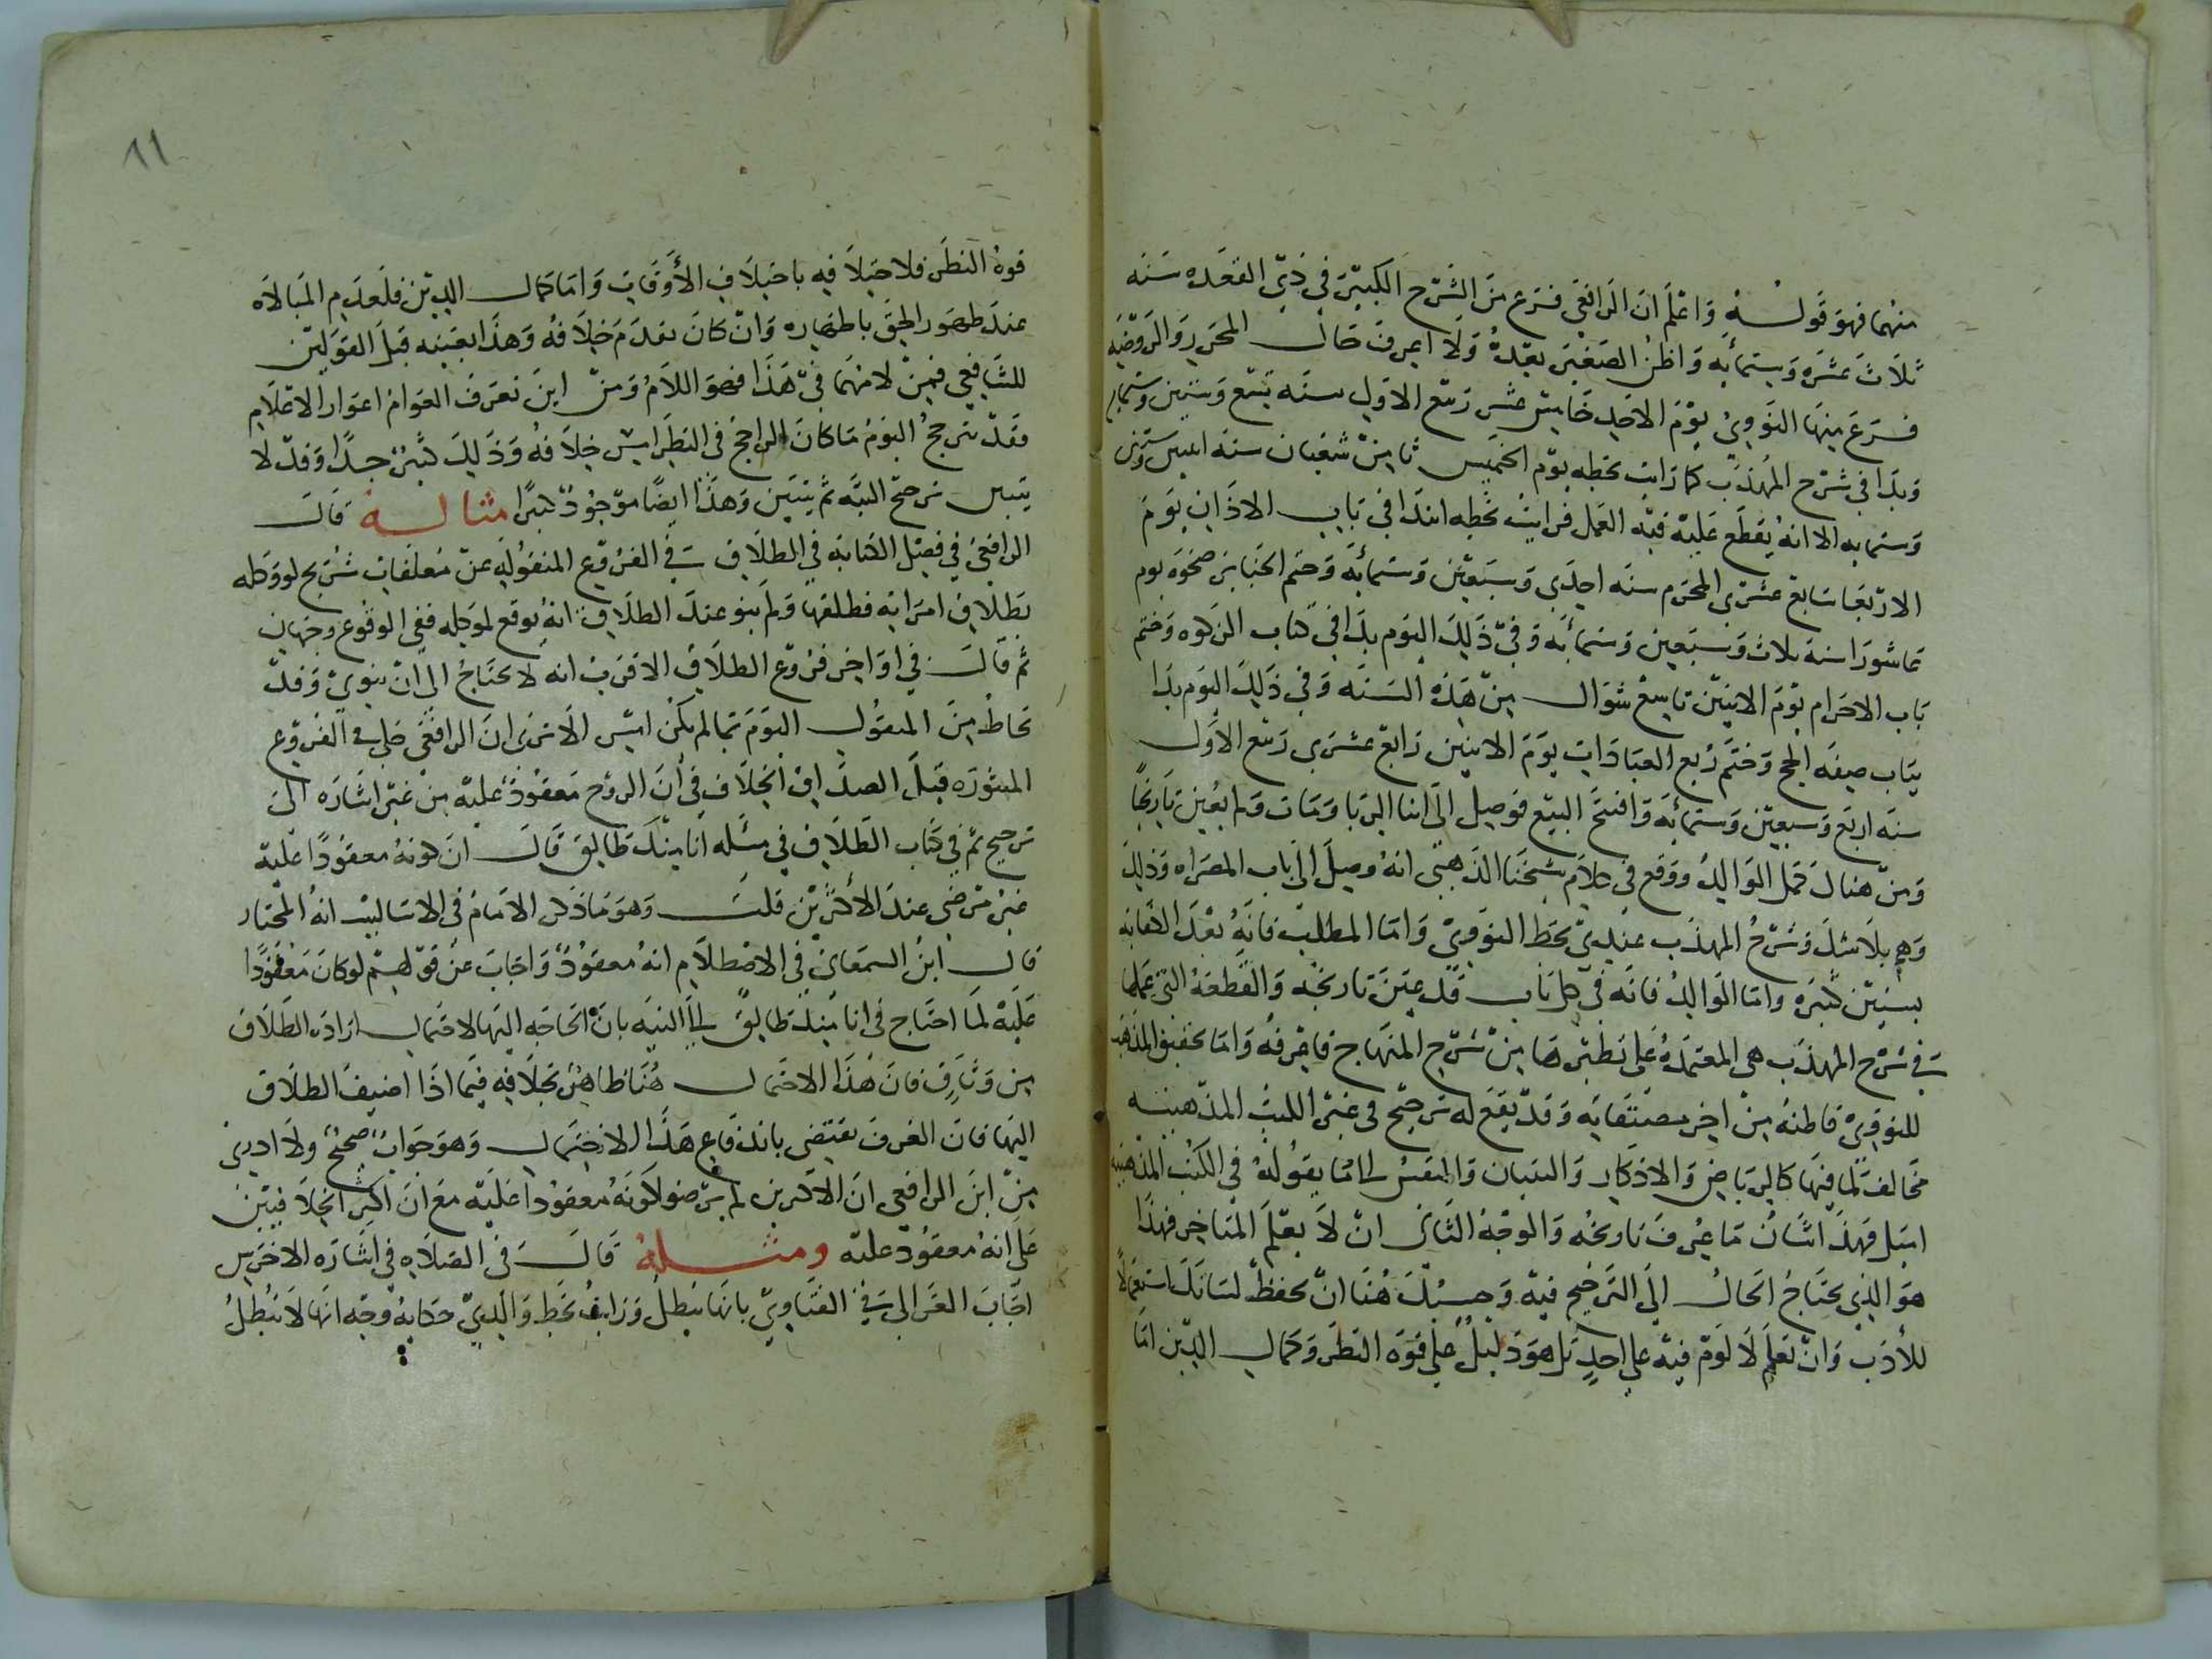 منهما فهو قوله واعلم ان الرافعي فرغ من الشرح الكبير في ذي القعده سنه
ثلاث عشره وستمائه واظن الصغير بعده ولا اعرف حال المحرر والروضه
فرغ منها النووي يوم الاحد خامس عشر ربيع الاول سنه تسع وستين وستمايه
وبدا في شرح المهذب كما رايت بخطه يوم الخميس ثامن شعبان سنه اثنين وستين
وستمايه الا انه يقطع عليه فيه العمل فرايت بخطه ابتدا في باب الاذان يوم
الاربعا سابع عشري المحرم سنه احدي وسبعين وستمائه وختم الجنايز ضحوه يوم
عاشورا سنة ثلاث وسبعين وستمائه وفي ذلك اليوم بدا في كتاب الزكوه وختم
باب الاحرام يوم الاثنين تاسع شوال من هذه السنه وفي ذلك اليوم بدا
بباب صفه الحج وختم ربع العبادات يوم الاثنين رابع عشري ربيع الاول
سنه اربع وسبعين وستمائه وافتتح البيع فوصل الى اثنا الربا ومات ولم يعين تاريخا
ومن هنال كمل الوالد ووقع في كلام شيخنا الذهبي انه وصل الى باب المصراه وذلك
وهم بلا شك وشرح المهذب عندي بخط النووي واما المطلب فانه بعد الكفايه
بسنين كثيره واما الوالد فانه في كل باب قد عين تاريخه والقطعة التي عملها
في شرح المهذب هي المعتمدة على نظيرها من شرح المنهاج فاعرفه واما تحقيق المذهب
للنووي فاظنه من اخر مصنفاته وقد يقع له ترجيح في غير الكتب المذهبيه
مخالف لما فيها كالرياض والاذكار والتبيان والنفس الى ما يقوله في الكتب المذهبيه
اميل فهذا شان ما عرف تاريخه والوجه الثاني ان لا يعلم المتاخر فهذا
هو الذي يحتاج الحال الى الترجيح فيه وحسبك هنا ان تحفظ لسانك استعمالا
للأدب وان تعلم لا لوم فيه علي احد بل هو دليل على قوه النظر وكمال الدين اما
٨١
قوة النظر فلاختلافه باختلاف الأوقات واما كمال الدين فلعدم المبالاه
عند ظهور الحق باظهاره وان كان تقدم خلافه وهذا بعينه قيل القولين
للشافعي فمن لامهما في هذا فهو اللام ومن اين تعرف العوام اعوار الاعلام
فقد يترجح اليوم ما كان الراجح في النظر امس خلافه وذلك كثير جدا وقد لا
يتبين ترجح البته ثم يتبين وهذا ايضا موجود كثيرا مثاله قال
الرافعي في فصل الكنايه في الطلاق في الفروع المنقوله عن معلقات شريح لو وكله
بطلاق امراته فطلقها ولم ينو عند الطلاق انه يوقع لموكله ففي الوقوع وجهان
ثم قال في اواخر فروع الطلاق الاقرب انه لا يحتاج الى ان ينوي وقد
تحاط من المنقول اليوم بما لم يكن امس الا ترى ان الرافعي حكى في الفروع
المنثوره قبل الصداق الخلاف في أن الزوج معقود عليه من غير اشاره الى
ترجيح ثم في كتاب الطلاق في مسئله انا منك طالق قال ان كونه معقودا عليه
غير مرضي عند الأكثرين قلت وهو ما ذكر الامام في الاساليب انه المختار
قال ابن السمعاني في الاصطلام انه معقود واجاب عن قولهم لو كان معقودا
عليه لما احتاج في انا منك طالق الى النيه بان الحاجه اليها لاحتمال اراده الطلاق
من وثاق فان هذا الاحتمال هنا ظاهر بخلافه فيما اذا اضيف الطلاق
اليها فان العرف يقتضي باندفاع هذا الاحتمال وهو جواب صحيح ولا ادرى
من اين الرافعي ان الاكثرين لم يرضوا كونه معقودا عليه مع ان اكثر الخلافيين
على انه معقود عليه ومثله قال في الصلاه في اشاره الاخرس
اجاب الغزالي في الفتاوي بانها تبطل ورايت بخط والدي حكاية وجه انها لا تبطل